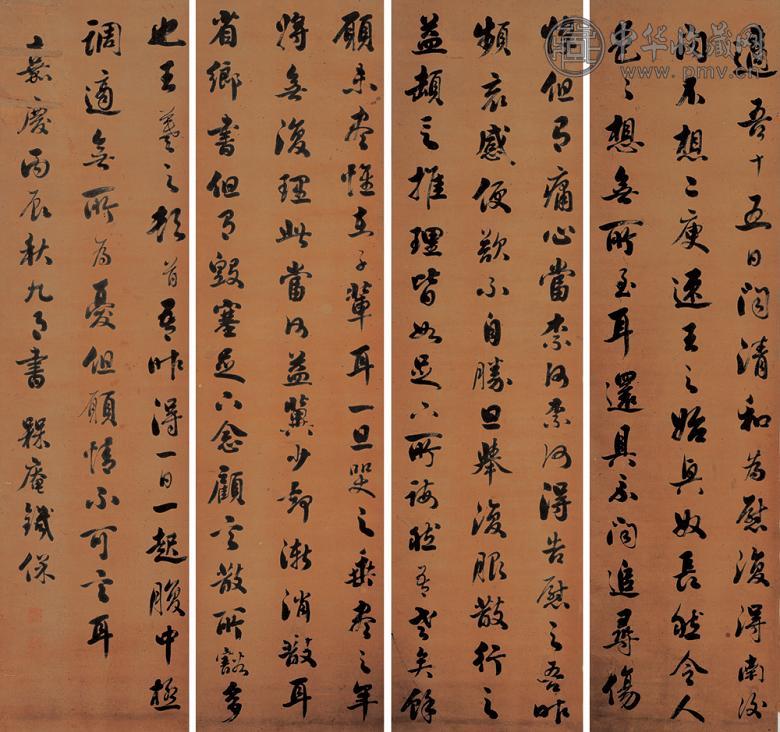 適吾十五日問清和為慰復得南後
問不想二庾速之始興奴長愁令人
邑之想無所至耳還具示問追尋傷
悼但有痛心當奈何奈何得告慰之吾昨
頻哀感便欲不自勝旦舉復服散行之
益頓之推理皆如足下所誨然吾老矣餘
願未盡惟在子輩耳一旦哭之垂盡之年
將無復理此當何益冀少卻漸消散耳
省卿書但有毀塞足下念顧言散所豁多
也王羲之頓首吾昨得一日一起腹中極
調適無所為憂但顧情不可言耳
嘉慶丙辰秋九月書 槑庵鐵保
中华收藏网
www.pmv.cn